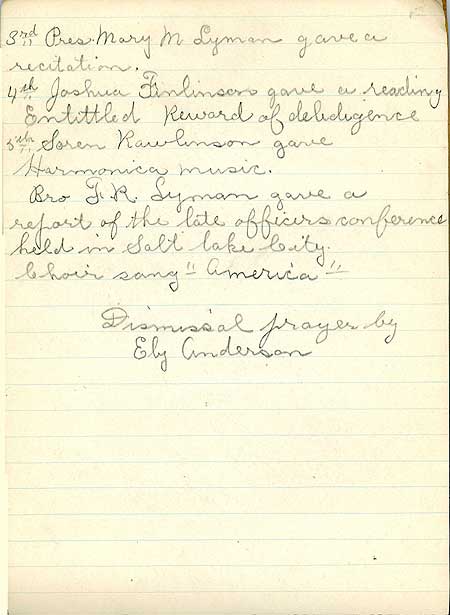 3rd Pres. Mary M. Lyman gave a
recitation.
4th Joshua Finlinson gave a reading
Entittled Reward of deledigence
5th Soren Rawlinson gave
Harmonica music.
Bro F. R. Lyman gave a
report of the late officers conference
held in Salt lake City.
Choir sang "America"
Dismissal prayer by
Ely Anderson